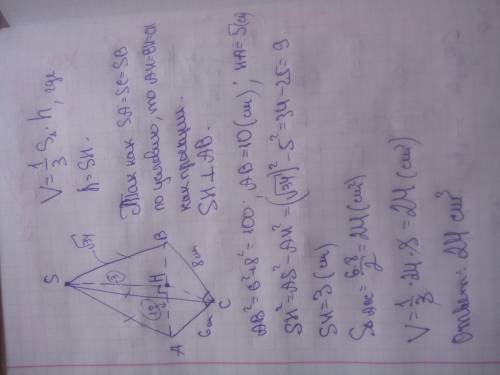 V = 1/3 S₀ · h, где
h = SH.
Так как SA = SC = SB
по условию, то AH = BH = CH
как проекции.
SH ⊥ AB.
S
√34
A
H
B
6 см
8 см
C
AB² = 6² + 8² = 100; AB = 10 (см); HA = 5 (см)
SH² = AS² - AH² = (√34)² - 5² = 34 - 25 = 9
SH = 3 (см)
S△ABC = 6·8/2 = 24 (см²)
V = 1/3 · 24 · 8 = 24 (см³)
Ответ: 24 см³